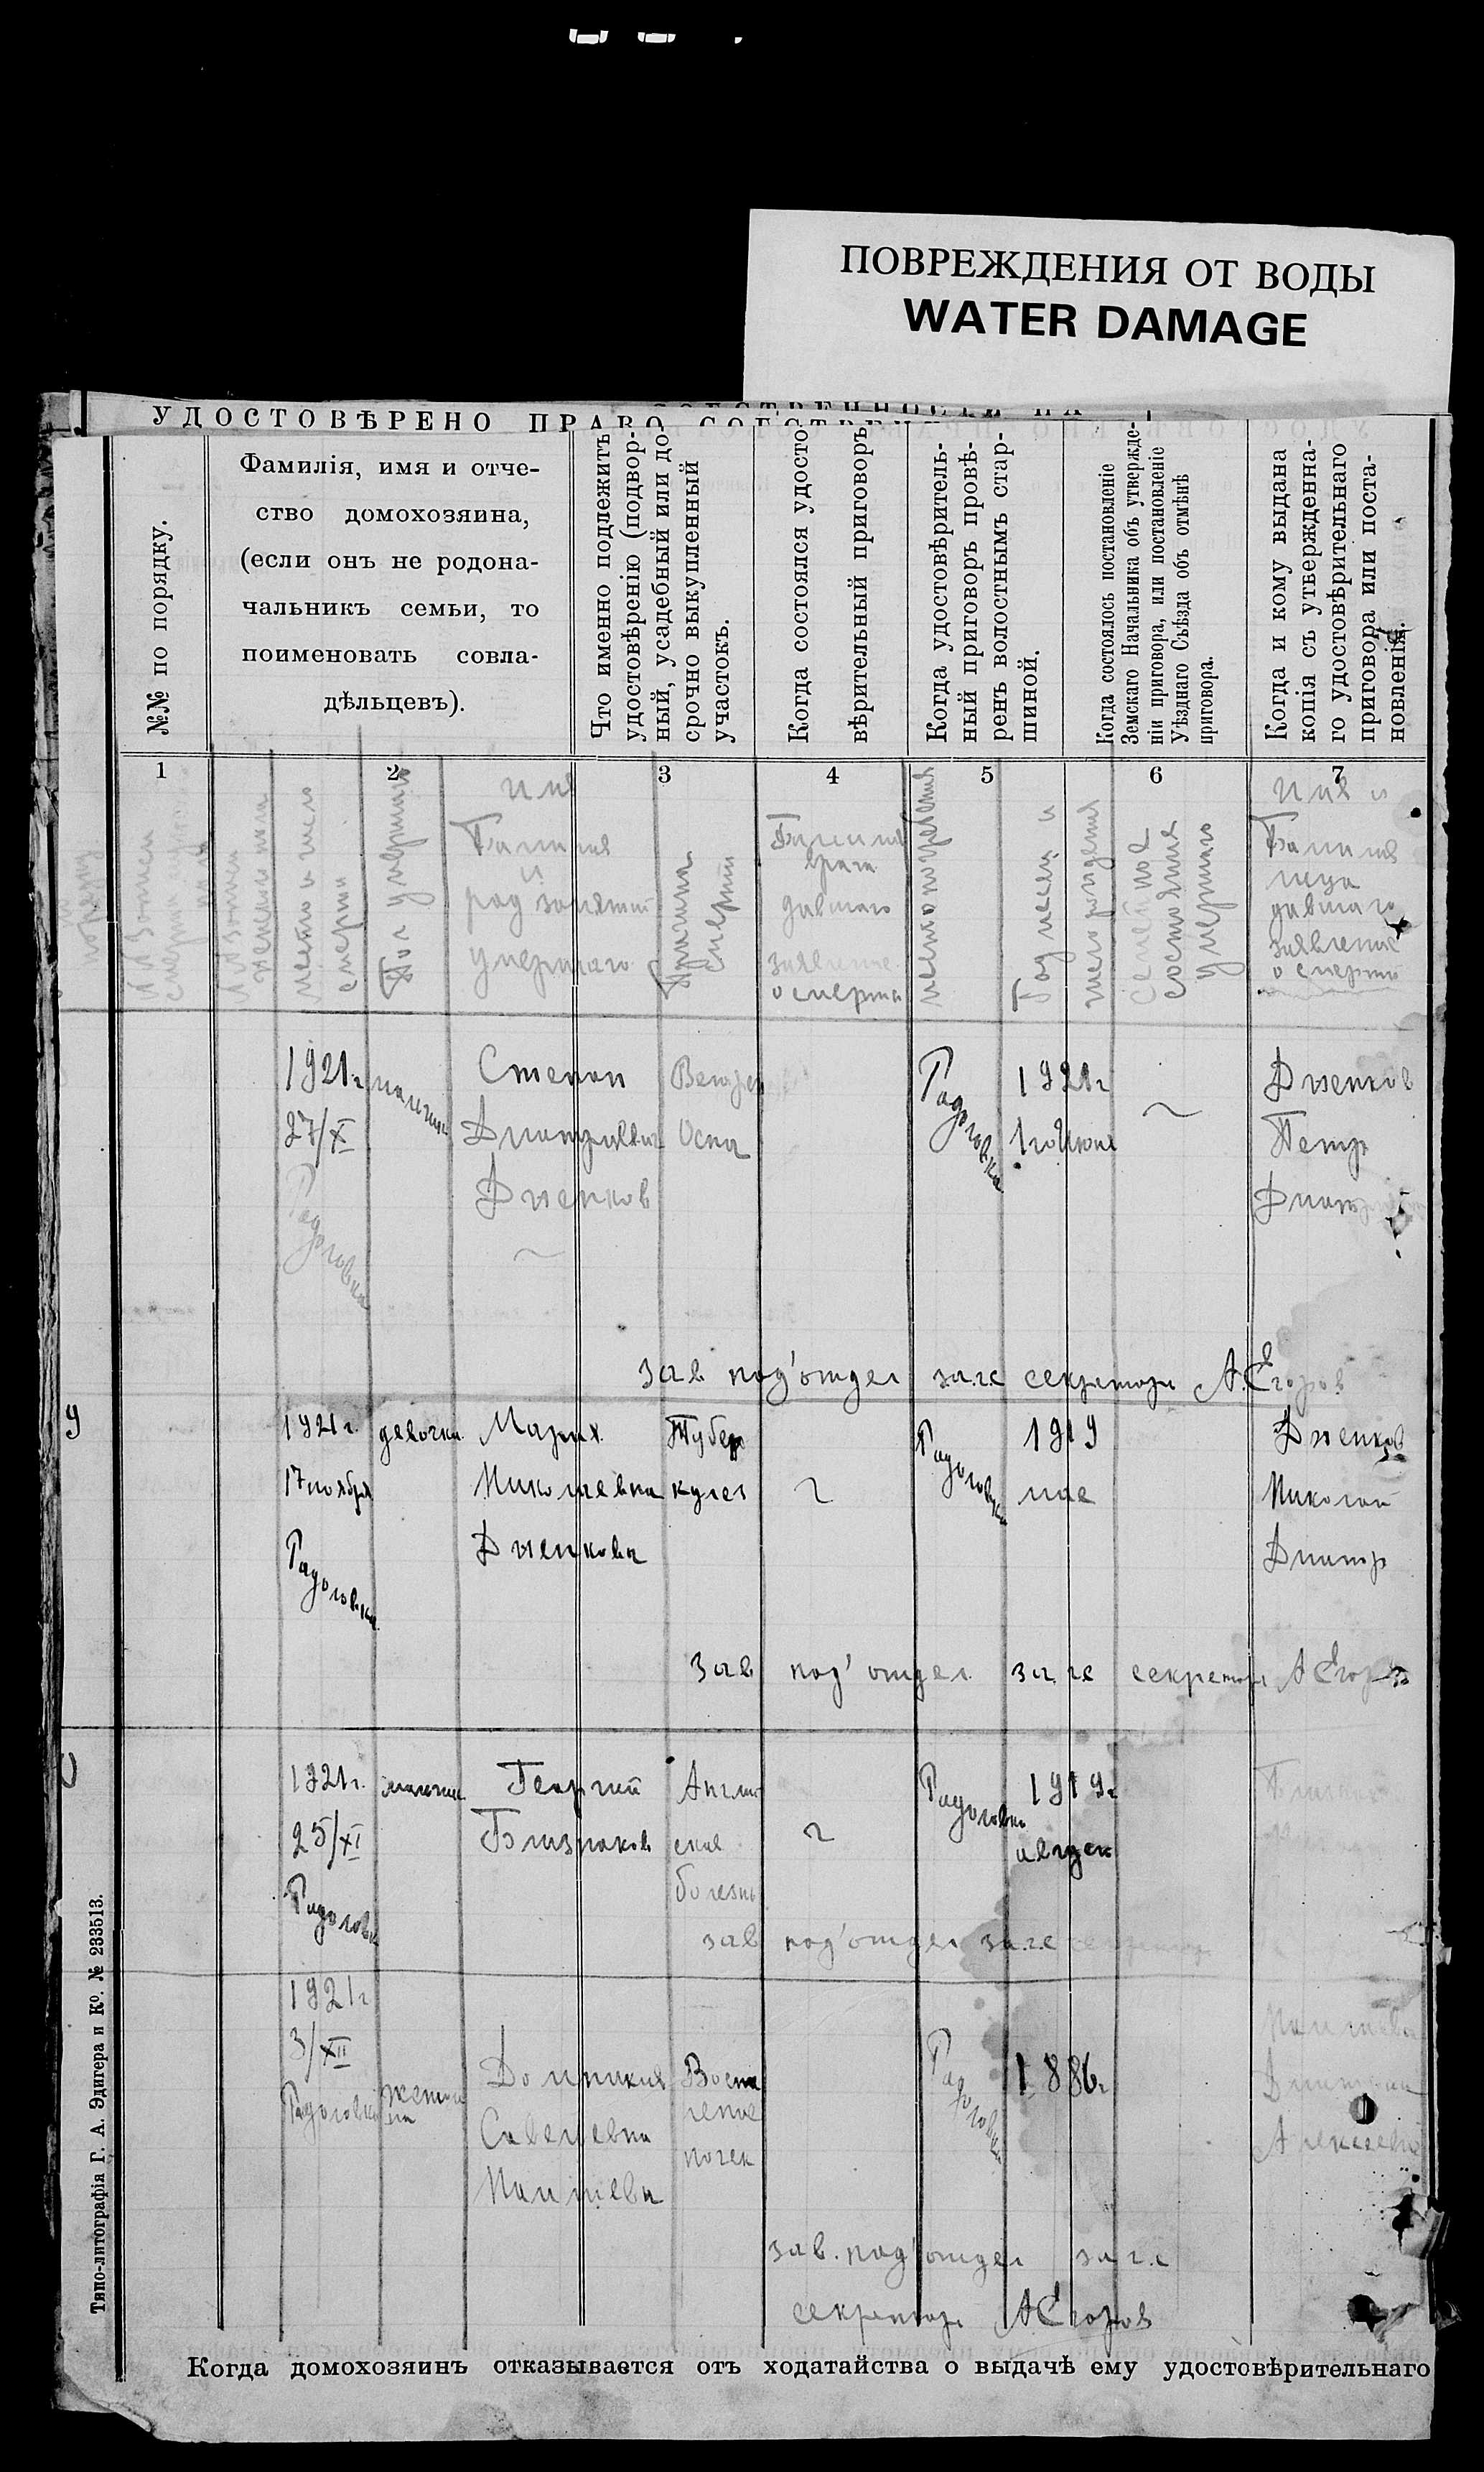 ПОВРЕЖДЕНИЯ ОТ ВОДЫ
WATER DAMAGE
УДОСТОВѢРЕНО ПРАВО
№№ по порядку.
Фамилія, имя и отче-
ство домохозяина,
(если онъ не родона-
чальникъ семьи, то
поименовать совла-
дѣльцевъ).
Что именно подлежитъ
удостовѣренію (подвор-
ный, усадебный или до-
срочно выкупленный
участокъ.
Когда состоялся удосто
вѣрительный приговоръ
Когда удостовѣритель-
ный приговоръ провѣ-
ренъ волостнымъ стар-
шиной.
Когда состоялось постановленіе
Земскаго Начальника объ утвержде-
ніи приговора, или постановленіе
Уѣзднаго Съѣзда объ отмѣнѣ
приговора.
Когда и кому выдана
копія съ утвержденна-
го удостовѣрительнаго
приговора или поста-
новленія.
1 2 3 4 5 6 7
место и число
смерти
Пол умершаго
имя
Фамилия
и
род занятий
умершаго
Причина
смерти
Фамилия
врача
давшаго
заявление
о смерти
место погребения
Год месяц и
число рождения
Семейное
состояние
умершаго
имя и
Фамилия
лица
давшаго
заявление
о смерти
1921г
27/X
Радоговка
мальчик
Степан
Дменков
Оспа
Радоговка
1921г
1го Июня
Дменков
Петр
зав под'отдел загс секретарь А.Егоров
9
1921г.
17 ноября
Радоговка
девочка
Мария
Николаевна
Дменкова
Тубер
кулез
Радоговка
1919
мае
Дменков
Николай
Дмитр
зав под' отдел загс секретарь АЕгоров
1921г.
25/XI
Радоговка
мальчик
Георгий
Близнаков
Англий
ская
болезнь
Радоговка
1919г
август
зав под'отдел загс секретарь
1921г
3/XII
Радоговка
женщи
на
Домникия
Савельевна
Воспа
ление
почек
Радоговка
1886г
зав. под'отдел загс
секретарь АЕгоров
Типо-литографія Г. А. Эдигера и Ко. № 233513.
Когда домохозяинъ отказывается отъ ходатайства о выдачѣ ему удостовѣрительнаго